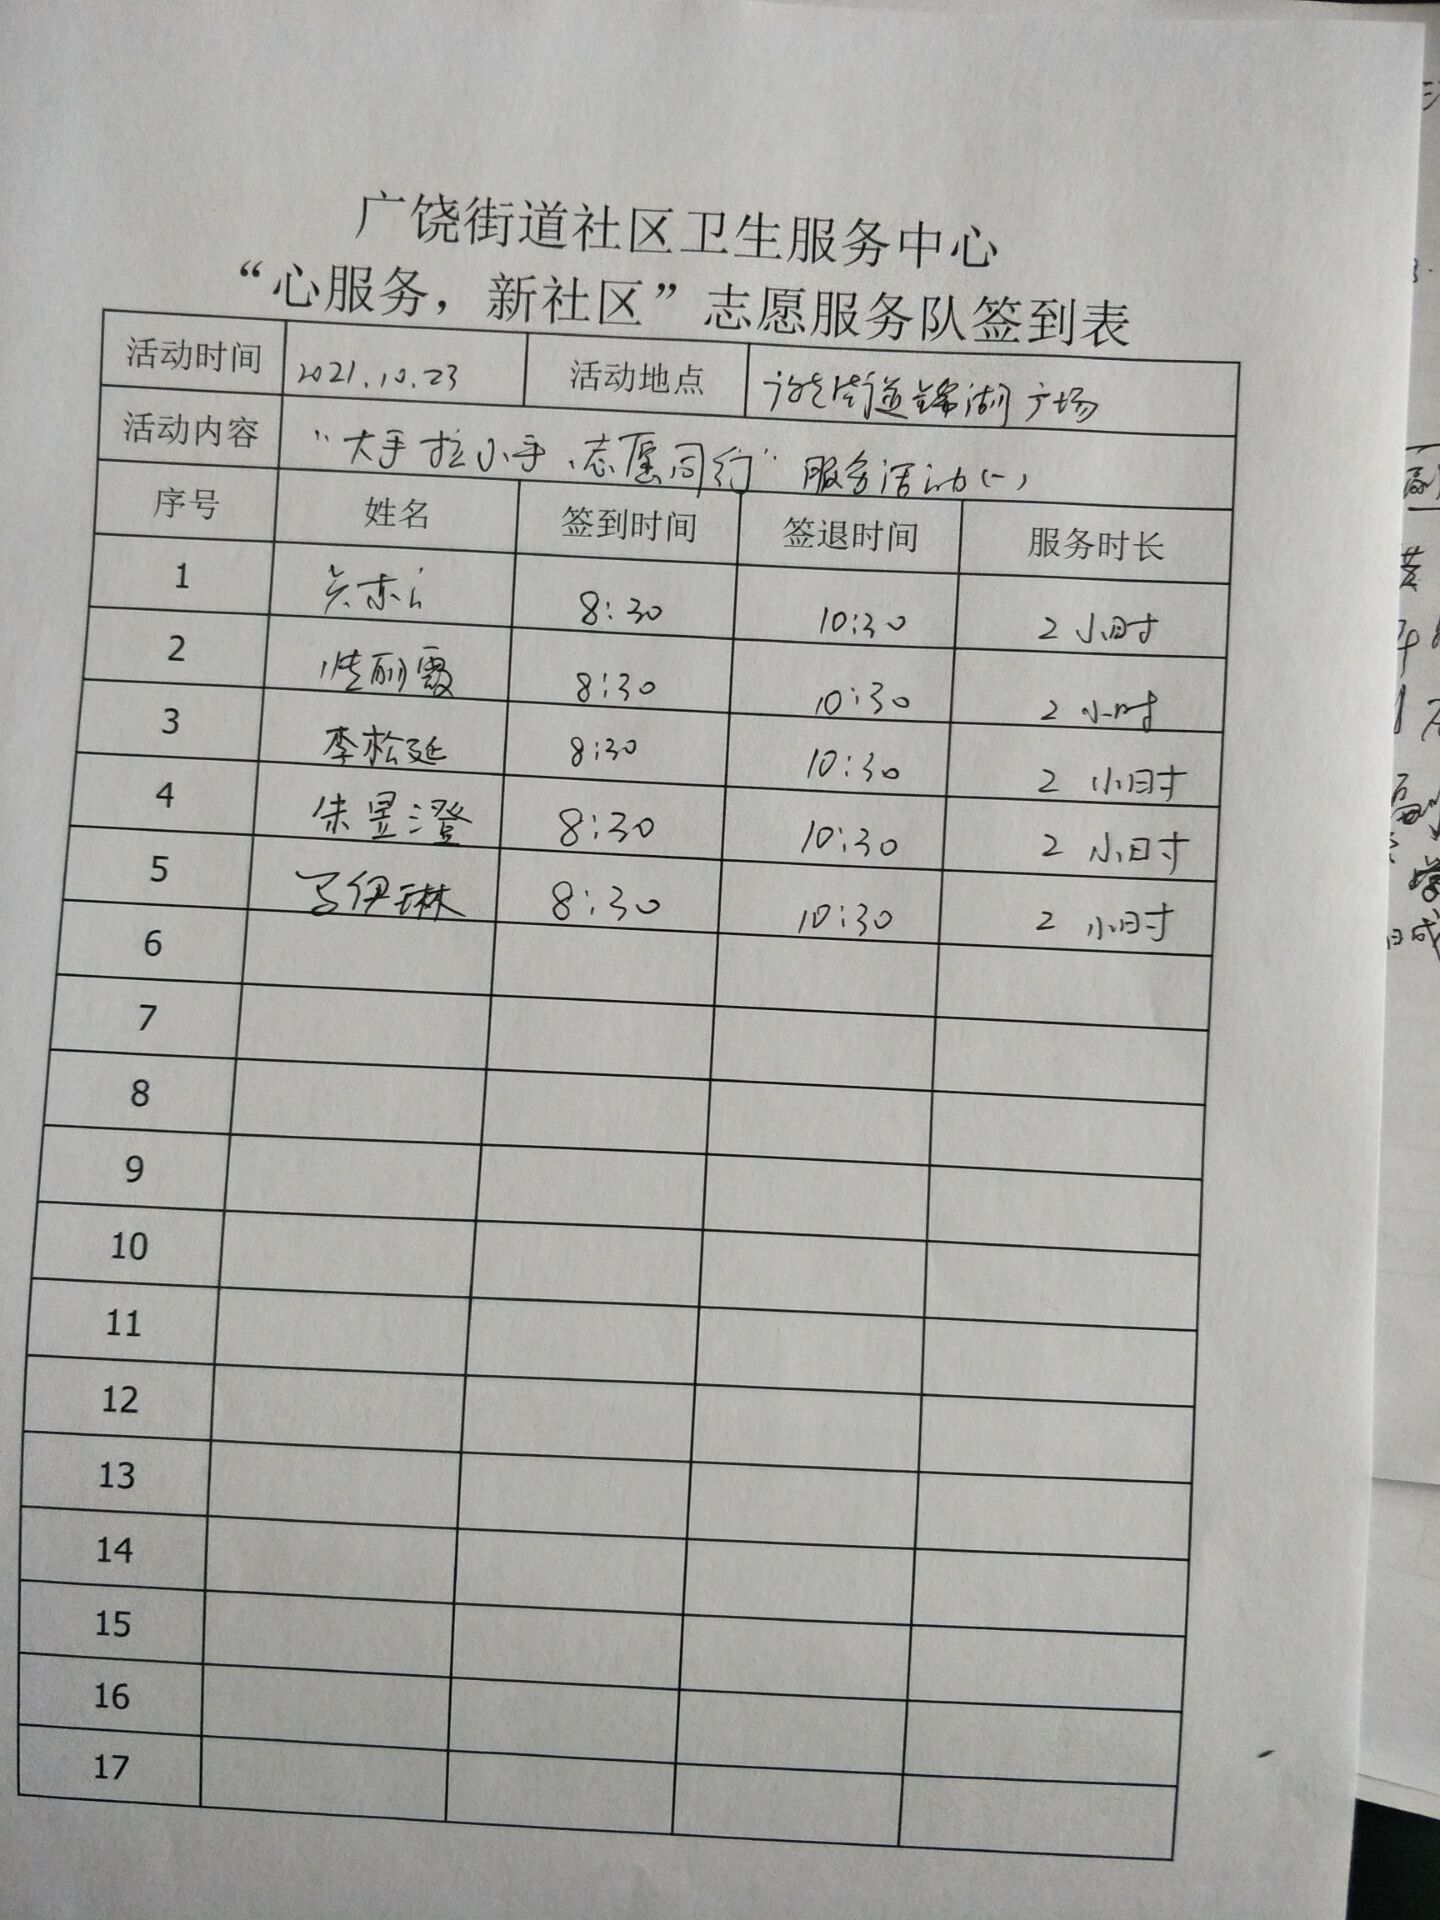 广饶街道社区卫生服务中心
“心服务，新社区”志愿服务队签到表
活动时间 2021.10.23 活动地点 街道锦湖广场
活动内容 “大手拉小手、志愿同行”服务活动(一)
序号 姓名 签到时间 签退时间 服务时长
1 8:30 10:30 2小时
2 丽霞 8:30 10:30 2小时
3 李松延 8:30 10:30 2小时
4 朱昱澄 8:30 10:30 2小时
5 伊琳 8:30 10:30 2小时
6
7
8
9
10
11
12
13
14
15
16
17